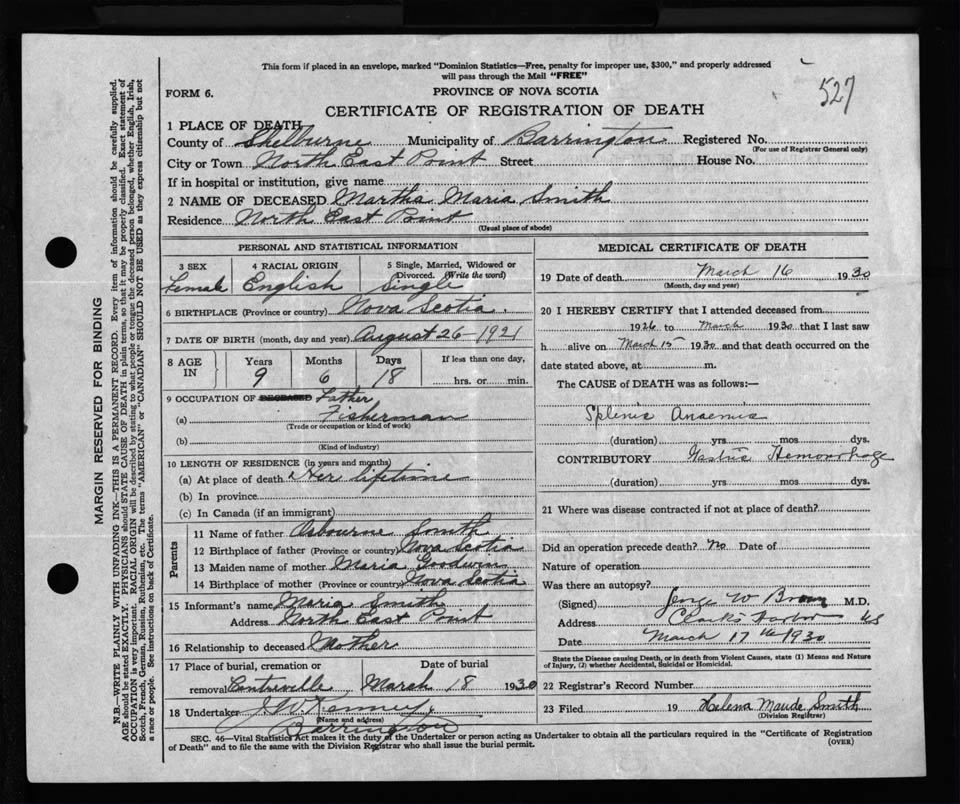 This form if placed in an envelope, marked "Dominion Statistics—Free, penalty for improper use, $300," and properly addressed
will pass through the Mail "FREE"
527
FORM 6.
PROVINCE OF NOVA SCOTIA
CERTIFICATE OF REGISTRATION OF DEATH
1 PLACE OF DEATH
County of Shelburne Municipality of Barrington Registered No.
(For use of Registrar General only)
City or Town North East Point Street House No.
If in hospital or institution, give name
2 NAME OF DECEASED Martha Maria Smith
Residence North East Point
(Usual place of abode)
PERSONAL AND STATISTICAL INFORMATION
3 SEX 4 RACIAL ORIGIN 5 Single, Married, Widowed or
Divorced. (Write the word)
Female English Single
6 BIRTHPLACE (Province or country) Nova Scotia.
7 DATE OF BIRTH (month, day and year) August 26-1921
8 AGE IN Years Months Days If less than one day,
9 6 18 hrs. or min.
9 OCCUPATION OF DECEASED Father
(a) Fisherman
(Trade or occupation or kind of work)
(b)
(Kind of industry)
10 LENGTH OF RESIDENCE (in years and months)
(a) At place of death Her lifetime
(b) In province
(c) In Canada (if an immigrant)
Parents
11 Name of father Osbourne Smith
12 Birthplace of father (Province or country) Nova Scotia
13 Maiden name of mother Maria Goodwin
14 Birthplace of mother (Province or country) Nova Scotia
15 Informant's name Maria Smith
Address North East Point
16 Relationship to deceased Mother
17 Place of burial, cremation or Date of burial
removal Centreville, March 18 1930
18 Undertaker J W Kenney
(Name and address)
Barrington
MEDICAL CERTIFICATE OF DEATH
19 Date of death March 16 1930
(Month, day and year)
20 I HEREBY CERTIFY that I attended deceased from
1926 to March 1930 that I last saw
h alive on March 15 1930 and that death occurred on the
date stated above, at m.
The CAUSE of DEATH was as follows:—
Splenic Anaemia
(duration) yrs mos dys.
CONTRIBUTORY Gastric Hemorrhage
(duration) yrs. mos. dys.
21 Where was disease contracted if not at place of death?
Did an operation precede death? No Date of
Nature of operation
Was there an autopsy?
(Signed) W Brown M.D.
Address Clark's Harbor NS
Date March 17th 1930
State the Disease causing Death, or in death from Violent Causes, state (1) Means and Nature
of Injury, (2) whether Accidental, Suicidal or Homicidal.
22 Registrar's Record Number
23 Filed 19 Helena Maude Smith
(Division Registrar)
SEC. 46—Vital Statistics Act makes it the duty of the Undertaker or person acting as Undertaker to obtain all the particulars required in the "Certificate of Registration
of Death" and to file the same with the Division Registrar who shall issue the burial permit.
(OVER)
MARGIN RESERVED FOR BINDING
N.B.—WRITE PLAINLY WITH UNFADING INK—THIS IS A PERMANENT RECORD. Every item of information should be carefully supplied.
AGE should be stated EXACTLY. PHYSICIANS should STATE CAUSE OF DEATH in plain terms, so that it may be properly classified. Exact statement of
OCCUPATION is very important. RACIAL ORIGIN will be described by stating to what people or tongue the deceased person belonged, whether English, Irish,
Scotch, French, German, Russian, Ruthenian, etc. The terms "AMERICAN" or "CANADIAN" SHOULD NOT BE USED as they express citizenship but not
a race or people. See instructions on back of Certificate.